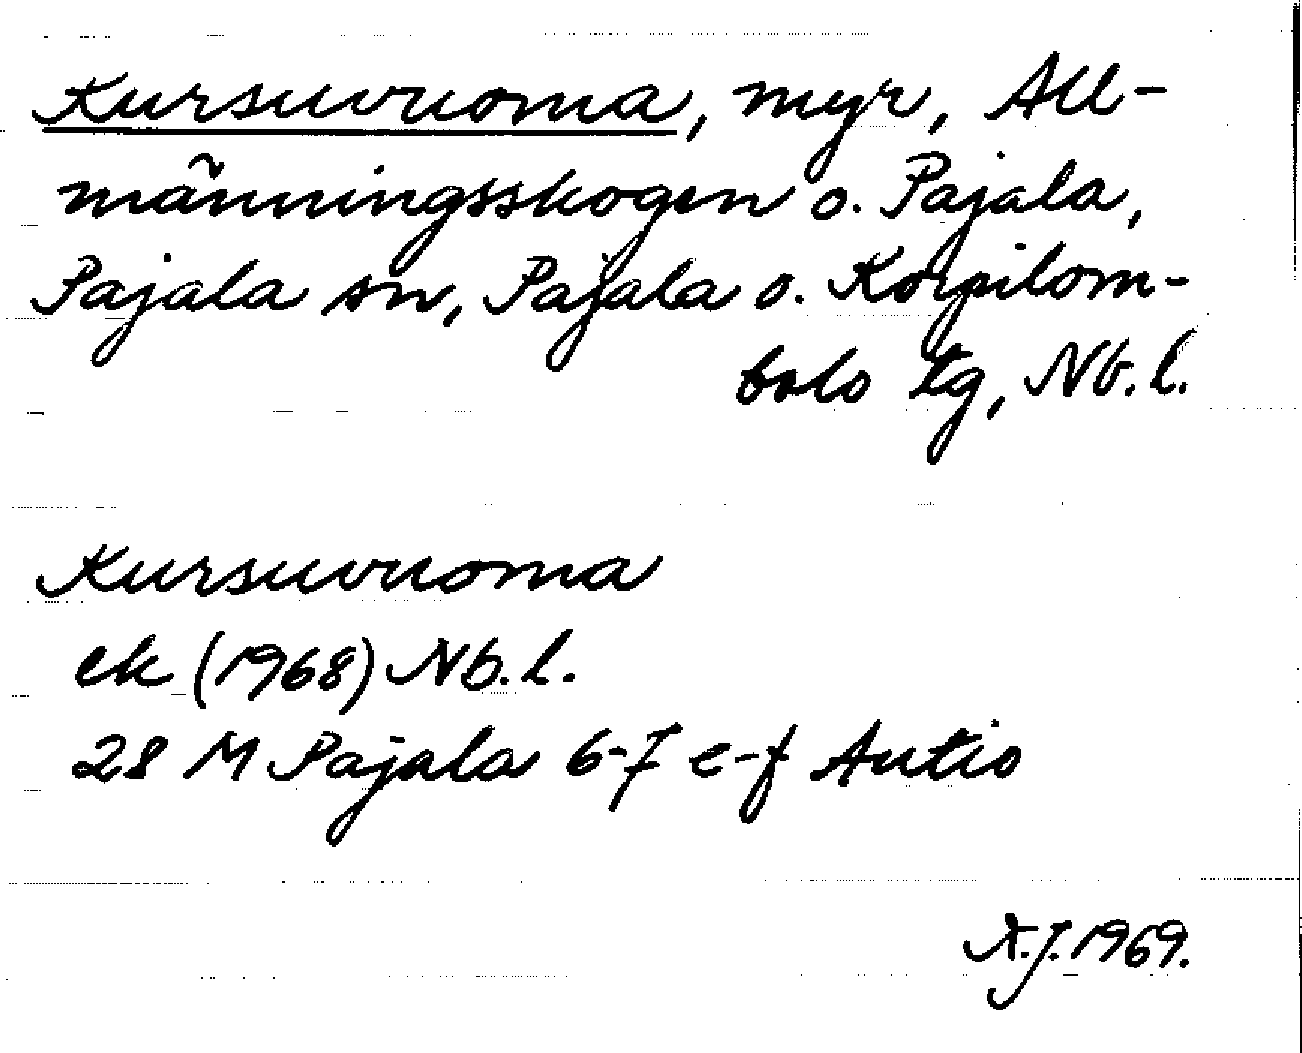 Kursuvuoma, myr, All-
männingsskogen o. Pajala,
Pajala sn, Pajala o. Korpilom-
bolo tg, Nb. l.
Kursuvuoma
ek (1968) Nb. l.
28 M Pajala 6-7 e-f Autio
A.J. 1969.